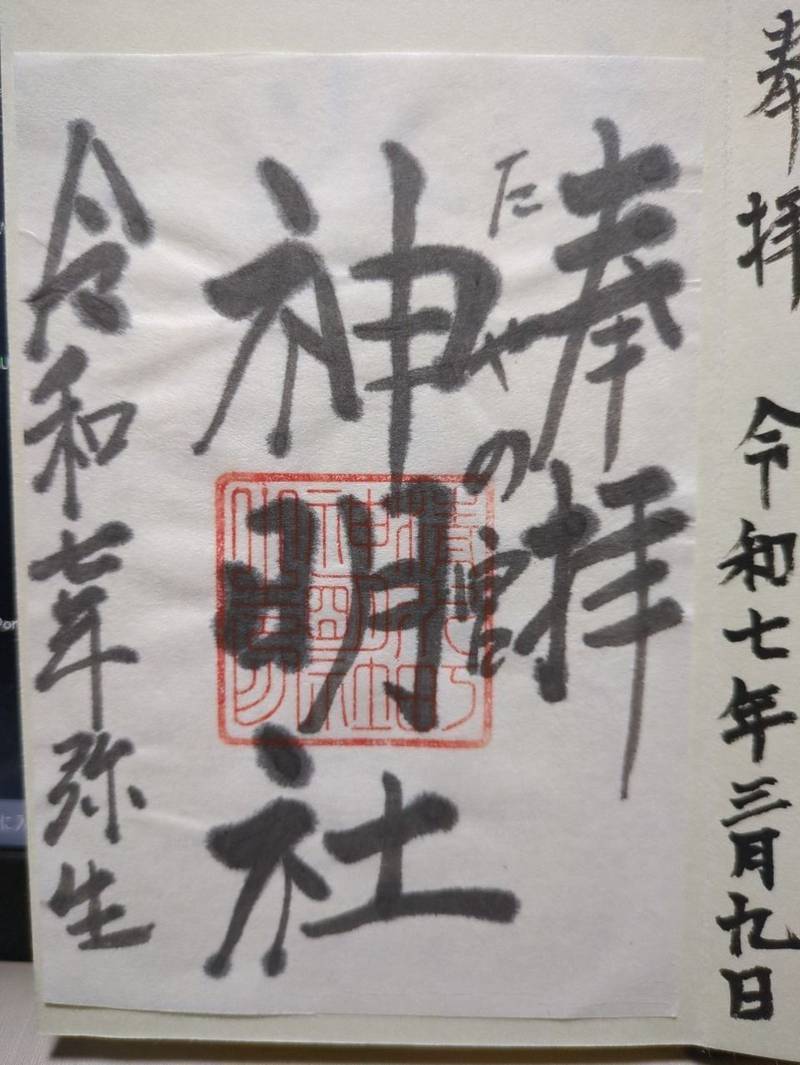 奉拝
令和七年三月九日
奉拝
神明社
令和七年弥生